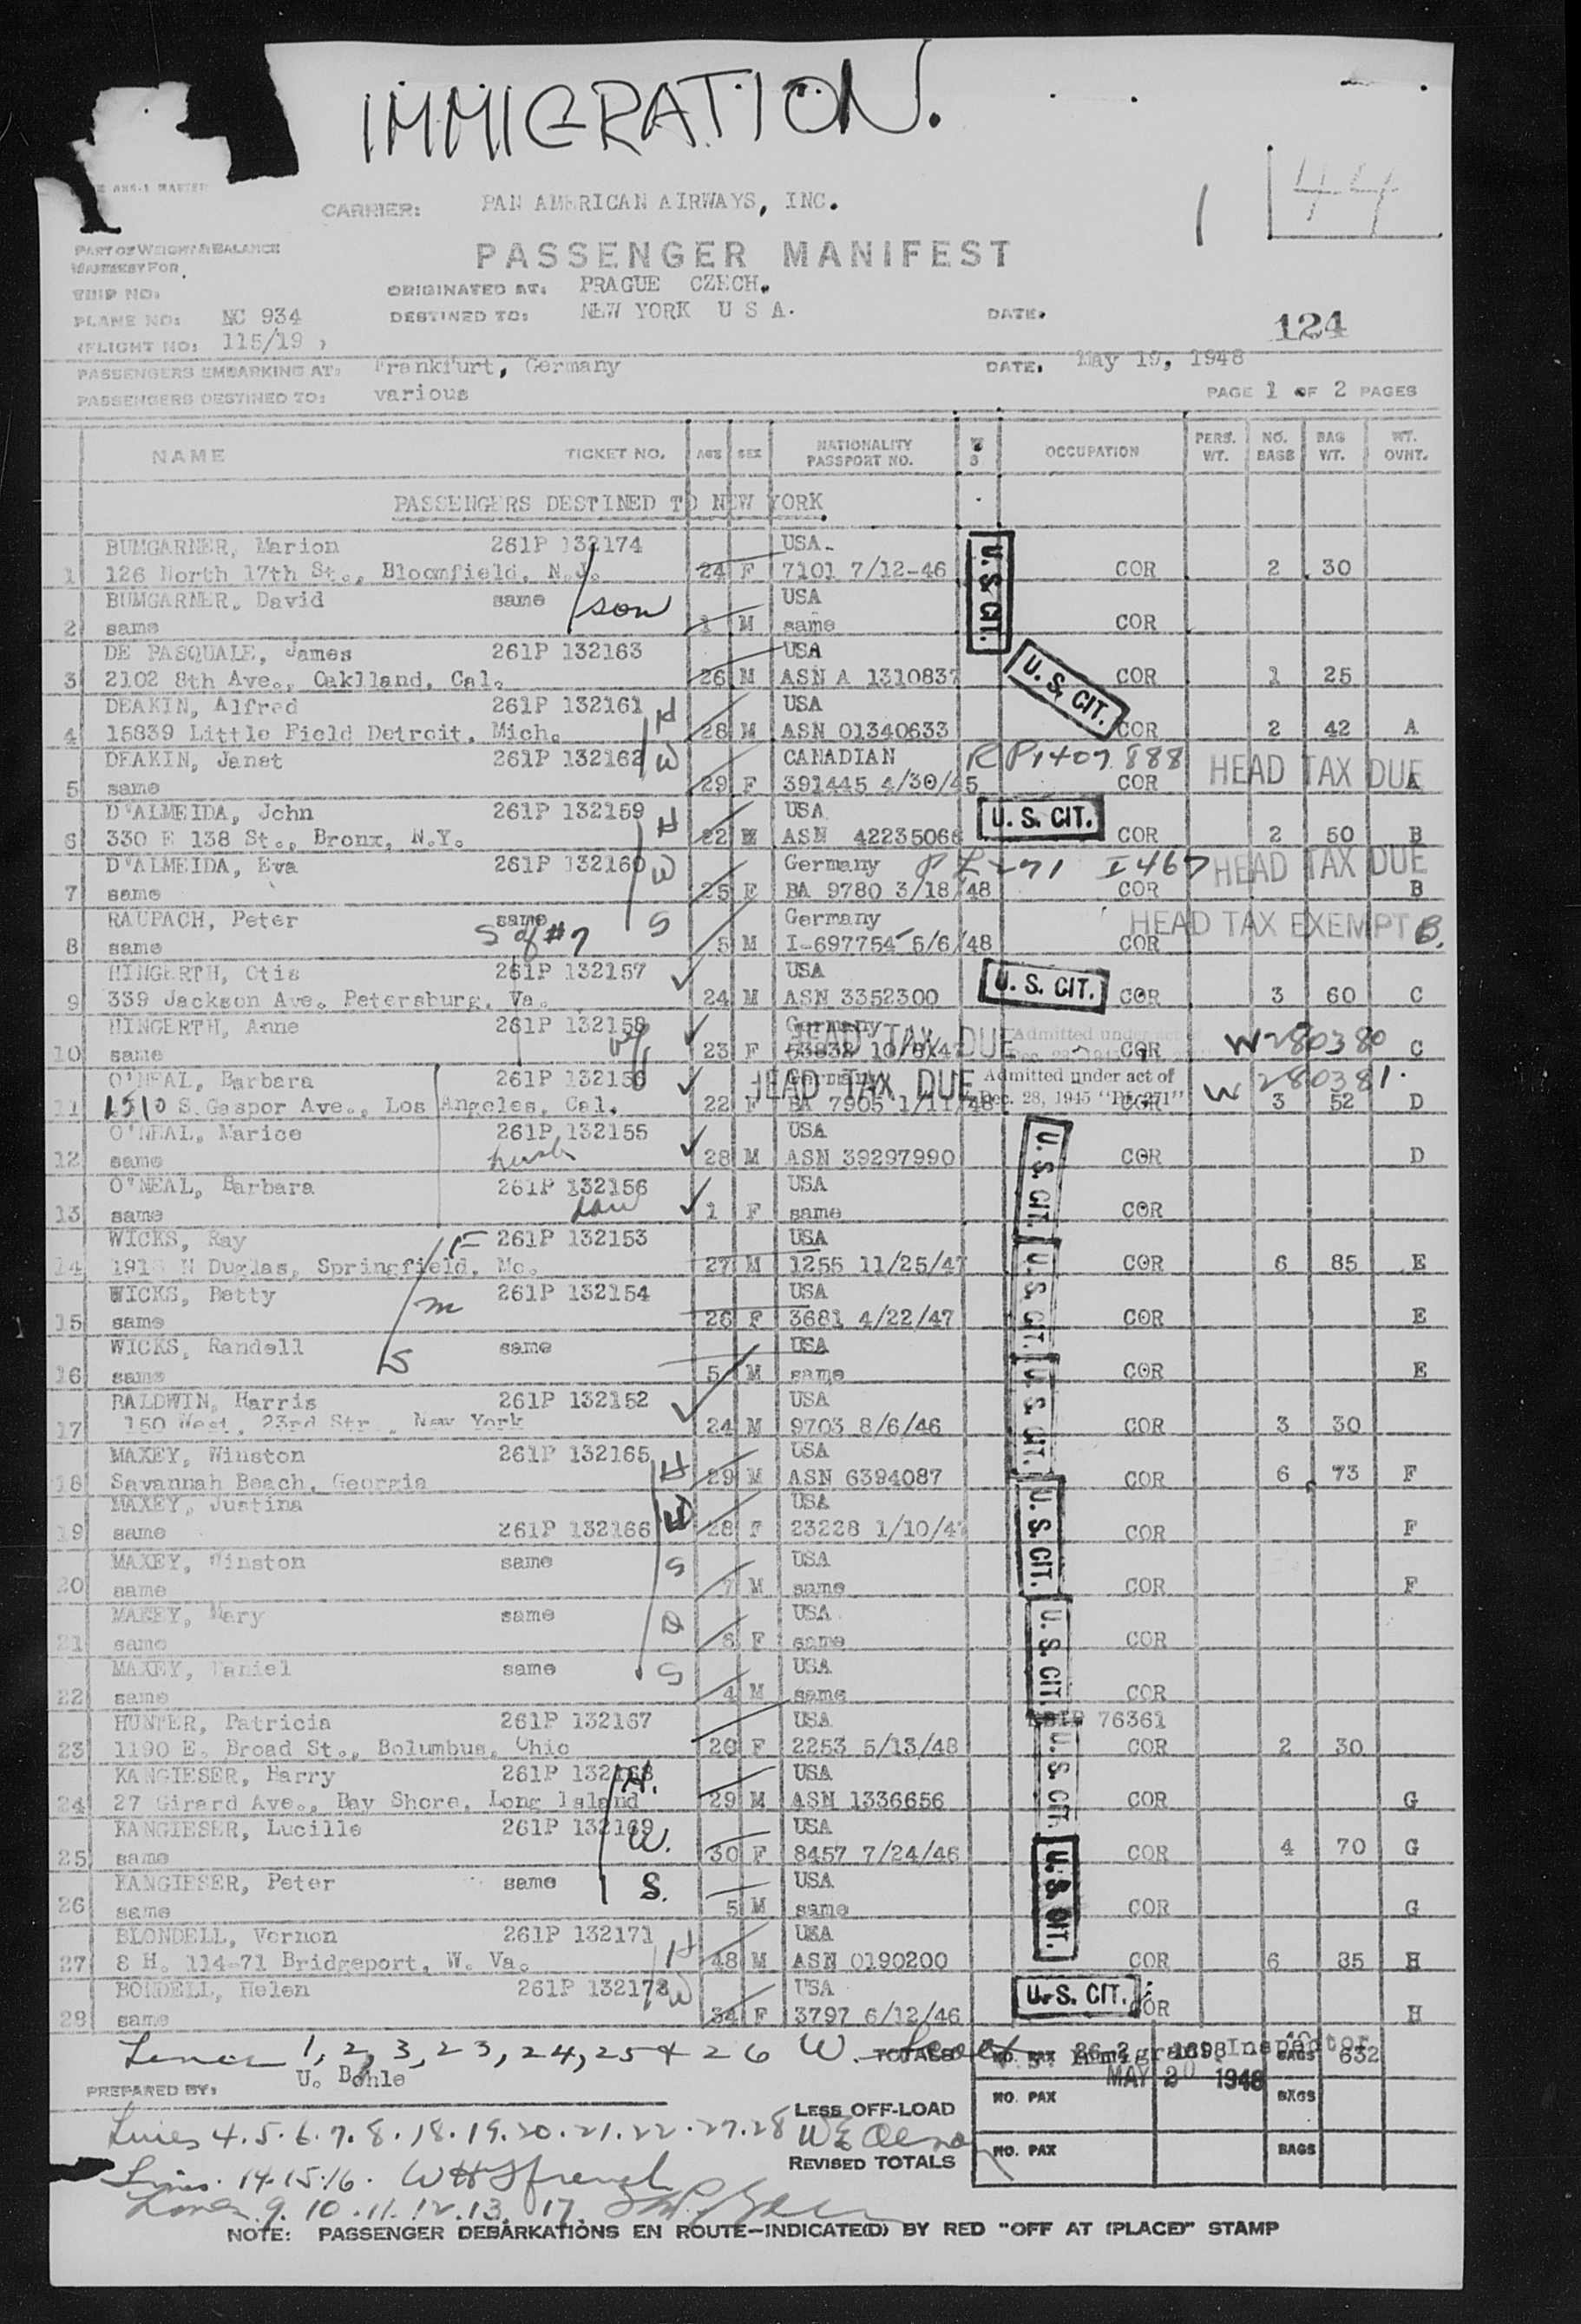 IMMIGRATION.
CARRIER: PAN AMERICAN AIRWAYS, INC.
1 44
PART OF WEIGHT & BALANCE
PASSENGER MANIFEST
MANIFEST FOR
TRIP NO:
ORIGINATED AT: PRAGUE CZECH.
PLANE NO: NC 934 DESTINED TO: NEW YORK U S A. DATE. 124
(FLIGHT NO: 115/19 )
PASSENGERS EMBARKING AT: Frankfurt, Germany DATE. May 19, 1948
PASSENGERS DESTINED TO: various PAGE 1 OF 2 PAGES
NAME TICKET NO. AGE SEX NATIONALITY PASSPORT NO. OCCUPATION PERS. WT. NO. BAGS BAG WT. WT. OVHT.
PASSENGERS DESTINED TO NEW YORK
BUMGARNER, Marion 261P 132174 USA.
1 126 North 17th St., Bloomfield, N.J. 24 F 7101 7/12-46 U. S CIT. COR 2 30
BUMGARNER, David same son USA
2 same 1 M same COR
DE PASQUALE, James 261P 132163 USA
3 2102 8th Ave., Oaklland, Cal. 26 M ASN A 1310837 U. S. CIT. COR 1 25
DEAKIN, Alfred 261P 132161 H USA
4 15839 Little Field Detroit, Mich. 28 M ASN 01340633 COR 2 42 A
DEAKIN, Janet 261P 132162 W CANADIAN RP1407888 HEAD TAX DUE
5 same 29 F 391445 4/30/45 COR A
D'ALMEIDA, John 261P 132159 H USA U. S. CIT.
6 330 E 138 St., Bronx, N.Y. 22 M ASN 42235066 COR 2 50 B
D'ALMEIDA, Eva 261P 132160 W Germany I467 HEAD TAX DUE
7 same 25 F BA 9780 3/18/48 COR B
RAUPACH, Peter same S of #7 S Germany HEAD TAX EXEMPT
8 same 5 M I-697754 5/6/48 COR B.
HINGERTH, Otis 261P 132157 USA U. S. CIT.
9 339 Jackson Ave. Petersburg, Va. 24 M ASN 3352300 COR 3 60 C
HINGERTH, Anne 261P 132158 Germany HEAD TAX DUE Admitted under act W280380
10 same 23 F COR C
O'NEAL, Barbara 261P 132156 Germany HEAD TAX DUE Admitted under act of W 280381.
11 1510 S. Gaspor Ave., Los Angeles, Cal. 22 F BA 7905 1/11/48 Dec. 28, 1945 "PL 271" COR 3 52 D
O'NEAL, Marice 261P 132155 USA
12 same husb 28 M ASN 39297990 U. S. CIT. COR D
O'NEAL, Barbara 261P 132156 USA
13 same 1 F same COR
WICKS, Ray F 261P 132153 USA
14 N Duglas, Springfield, Mo. 27 M 1255 11/25/47 U. S. CIT. COR 6 85 E
WICKS, Betty m 261P 132154 USA
15 same 26 F 3681 4/22/47 COR E
WICKS, Randell S same USA
16 same 5 M same U. S. CIT. COR E
BALDWIN, Harris 261P 132152 USA
17 150 West, 23rd Str., New York 24 M 9703 8/6/46 COR 3 30
MAXEY, Winston 261P 132165 H USA
18 Savannah Beach, Georgia 29 M ASN 6394087 COR 6 73 F
MAXEY, Justina W USA U. S. CIT.
19 same 261P 132166 28 F 23228 1/10/47 COR F
MAXEY, Winston same S USA
20 same 7 M same COR F
MAXEY, Mary same D USA U. S. CIT.
21 same 6 F same COR
MAXEY, Daniel same S USA
22 same 4 M same COR
HUNTER, Patricia 261P 132167 USA 76361
23 1190 E. Broad St., Bolumbus, Ohio 20 F 2253 5/13/48 U. S. CIT. COR 2 30
KANGIESER, Harry 261P 132168 H. USA
24 27 Girard Ave., Bay Shore, Long Island 29 M ASN 1336656 COR G
KANGIESER, Lucille 261P 132169 W. USA
25 same 30 F 8457 7/24/46 U. S. CIT. COR 4 70 G
KANGIESER, Peter same S. USA
26 same 5 M same COR G
BLONDELL, Vernon 261P 132171 H USA
27 8 H. 114-71 Bridgeport, W. Va. 48 M ASN 0190200 COR 6 35 H
BONDELL, Helen 261P 132172 W USA U. S. CIT.
28 same 34 F 3797 6/12/46 COR H
Lines 1, 2, 3, 23, 24, 25 & 26 W. TOTALS NO. PAX 26-2 1698 BAGS 632
Immigrant Inspector
U. Bohle MAY 20 1948
PREPARED BY:
LESS OFF-LOAD NO. PAX BAGS
Lines 4. 5. 6. 7. 8. 18. 19. 20. 21. 22. 27. 28
REVISED TOTALS NO. PAX BAGS
Lines. 14. 15. 16.
Lines. 9. 10. 11. 12. 13. 17.
NOTE: PASSENGER DEBARKATIONS EN ROUTE—INDICATE(D) BY RED "OFF AT (PLACE)" STAMP